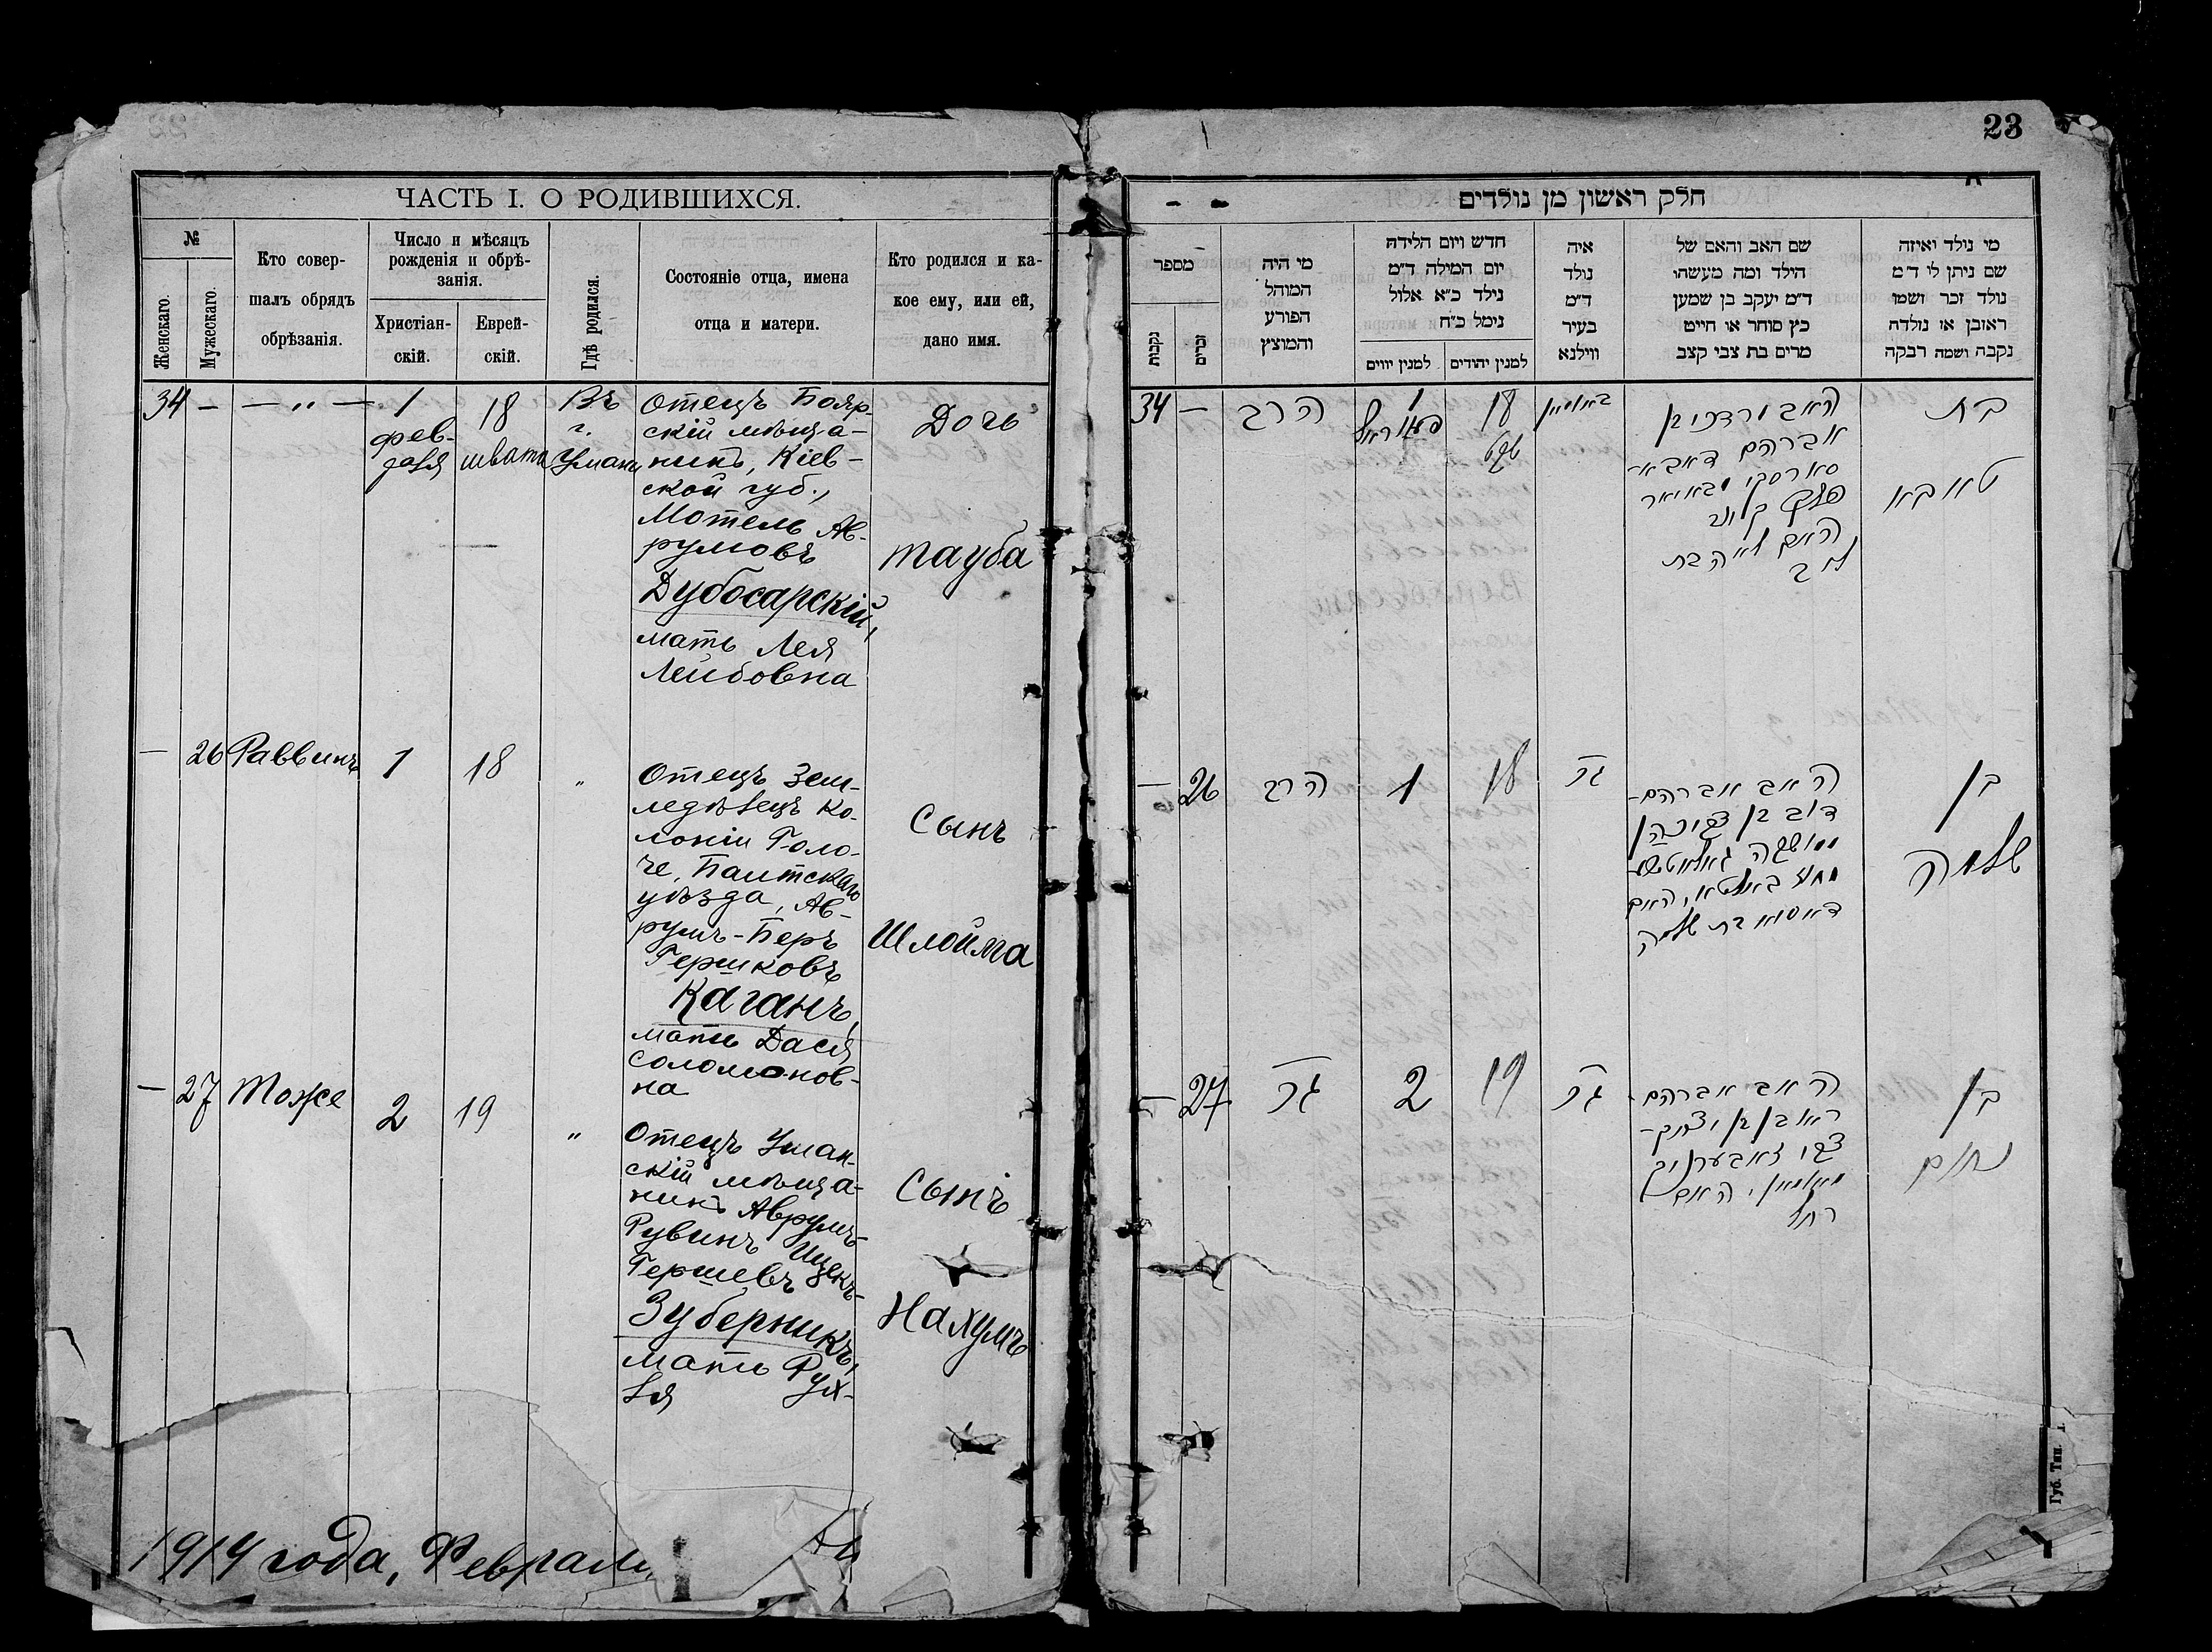 23
ЧАСТЬ I. О РОДИВШИХСЯ.
№
Женскаго.
Мужескаго.
Кто совер-
шалъ обрядъ
обрѣзанія.
Число и мѣсяцъ
рожденія и обрѣ-
занія.
Христіан-
скій.
Еврей-
скій.
Гдѣ родился.
Состояніе отца, имена
отца и матери.
Кто родился и ка-
кое ему, или ей,
дано имя.
34 — — „ — 1
фев-
раля
18
швата
Въ
г.
Умани
Отецъ Бояр-
скій мѣща-
нинъ, Кіев-
ской губ.,
Мотель Ав-
румовъ
Дубосарскій,
мать Лея
Лейбовна
Дочь
Тауба
— 26 Раввинъ 1 18 „
Отецъ Зем-
ледѣлецъ ко-
лоніи Голо-
че, Балтскаго
уѣзда, Ав-
румъ-Беръ
Гершковъ
Каганъ,
мать Дася
Соломонов-
на
Сынъ
Шлойма
— 27 Тоже 2 19 „
Отецъ Уман-
скій мѣща-
нинъ Аврумъ-
Рувинъ Ицекъ-
Гершевъ
Зуберникъ,
мать Рух-
ля
Сынъ
Нахумъ
1914 года, Февраль
חלק ראשון מן נולדים
מספר
נקבות
זכרים
מי היה
המוהל
הפורע
והמוצץ
חדש ויום הלידה
יום המילה ד״מ
נילד כ״א אלול
נימל כ״ח
למנין יווים
למנין יהודים
איה
נולד
ד״מ
בעיר
ווילנא
שם האב והאם של
הילד ומה מעשהו
ד״מ יעקב בן שמען
כץ סוחר או חייט
מרים בת צבי קצב
מי נולד ואיזה
שם ניתן לו ד״מ
נולד זכר ושמו
ראובן או נולדה
נקבה ושמה רבקה
34 — הרב 1
פעווראל
18
שבט
באומאן
האב מרדכי בן
אברהם דאבא-
סארסקי
האם לאה בת
ליב
בת
טאבא
— 26 הרב 1 18
האב אברהם-
דוב בן צבי כהן
האם
דאסיא בת שלמה
בן
שלמה
— 27 2 19
האב אברהם-
ראובן בן יצחק-
צבי זאבערניק
מאומאן, האם
רחל
בן
נחום
Губ. Тип.